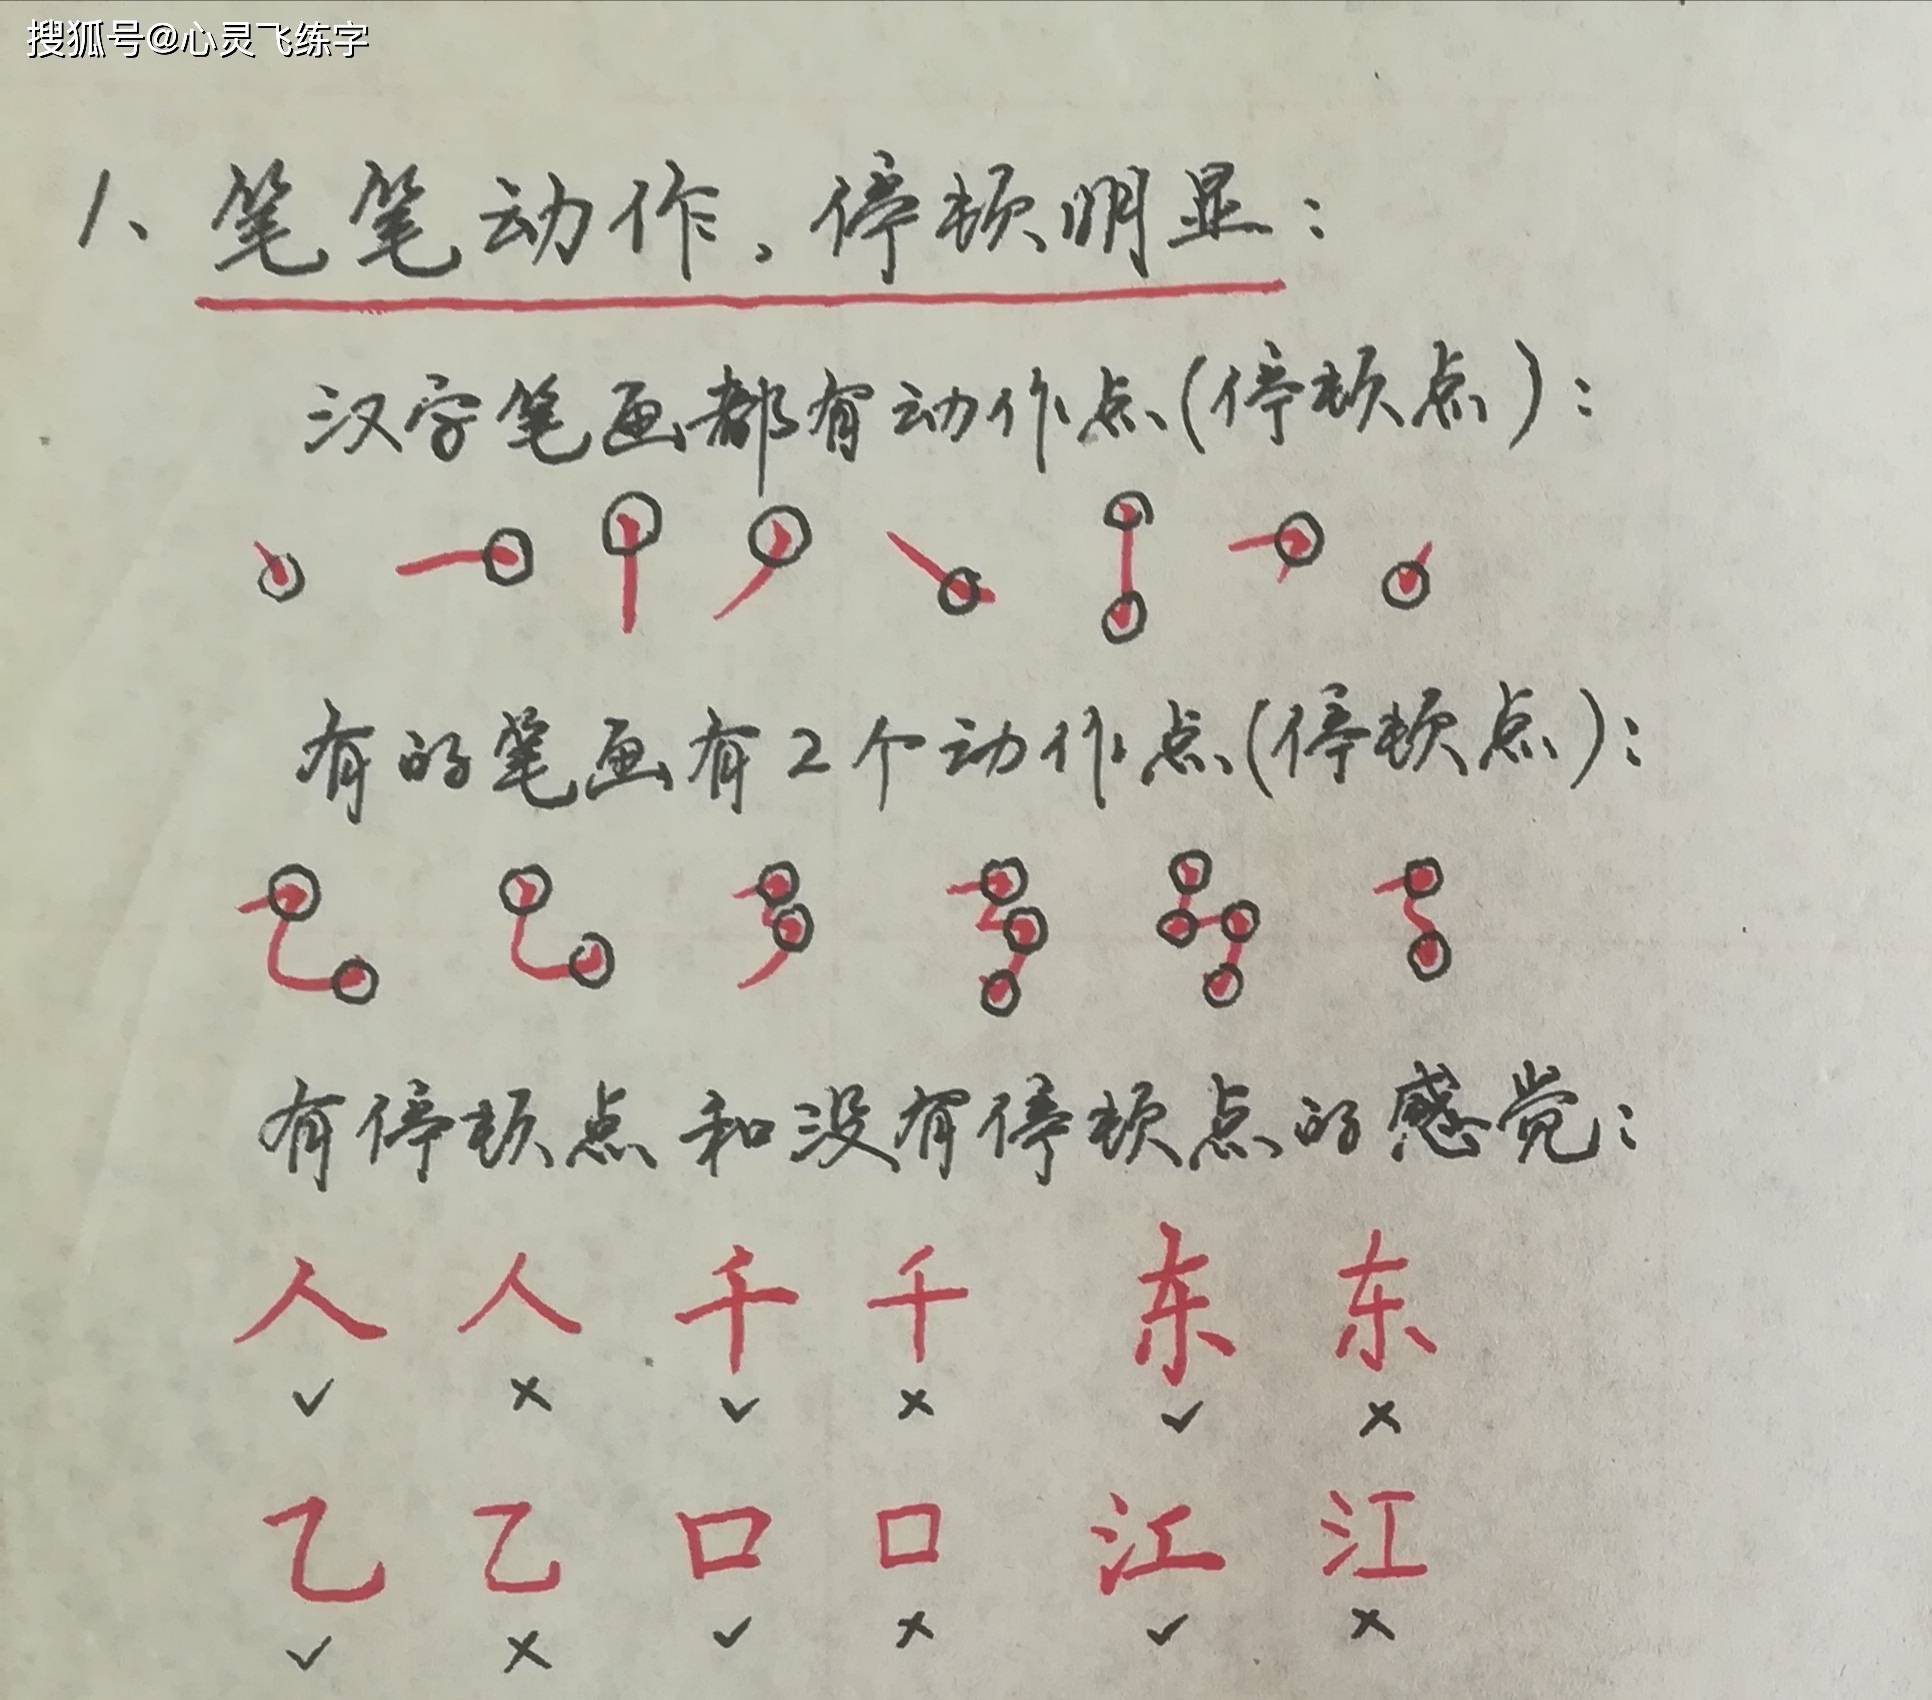 搜狐号@心灵飞练字
1、笔笔动作、停顿明显：
汉字笔画都有动作点(停顿点)：
有的笔画有2个动作点(停顿点)：
有停顿点和没有停顿点的感觉：
人 人 千 千 东 东
✓ × ✓ × ✓ ×
乙 乙 口 口 江 江
✓ × ✓ × ✓ ×